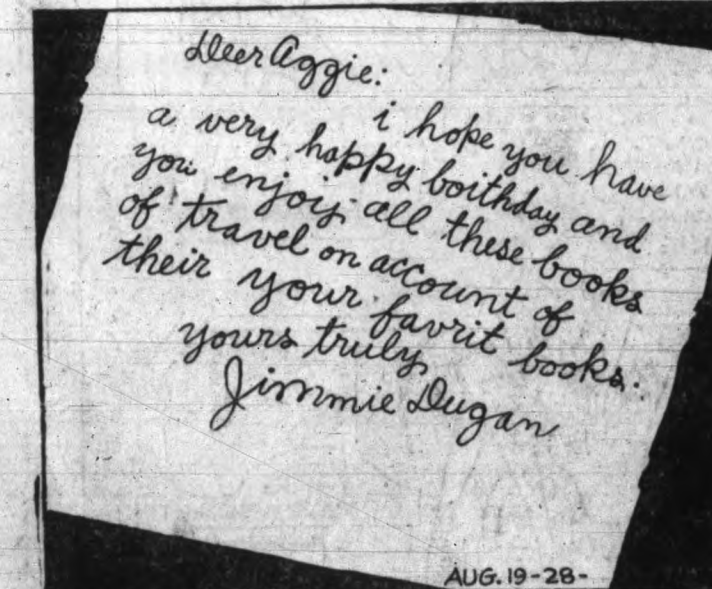 Deer Aggie:
i hope you have
a very happy boithday and
you enjoiy all these books
of travel on account of
their your favrit books.
yours truly
Jimmie Dugan
AUG. 19-28-